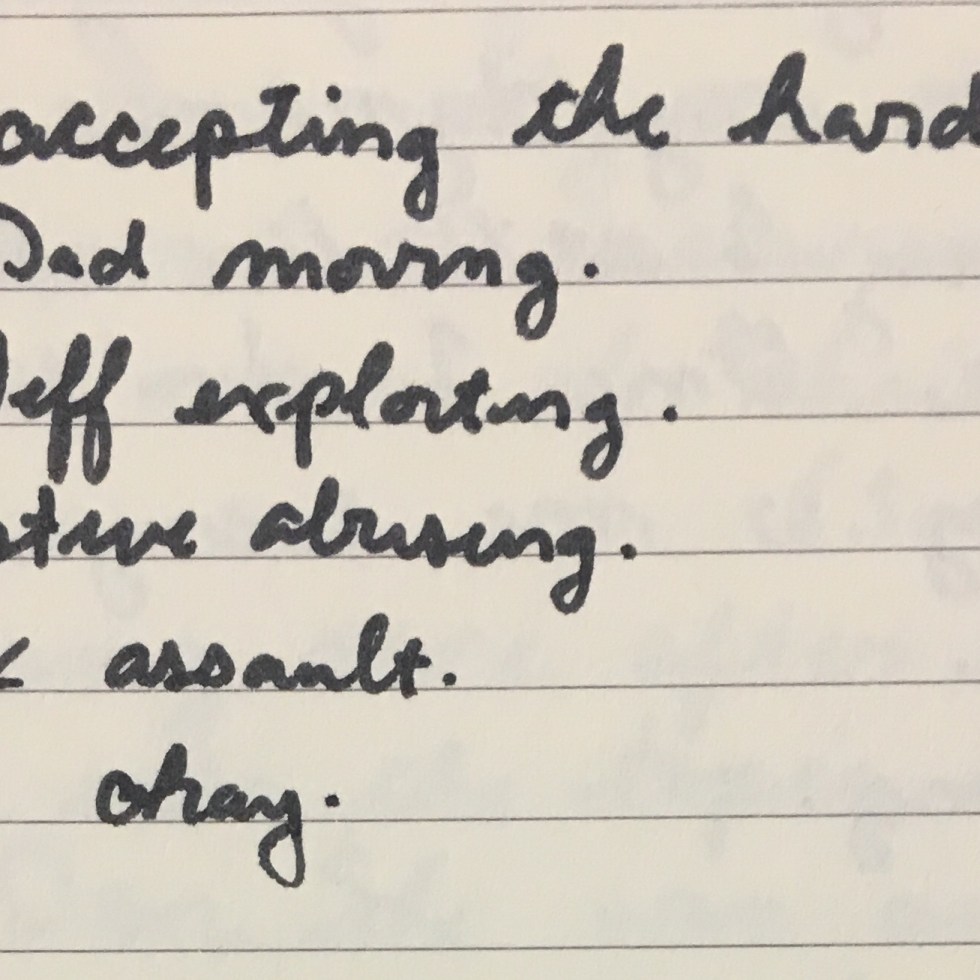 accepting the hard
Dad moving.
Jeff exploiting.
abusing.
assault.
okay.